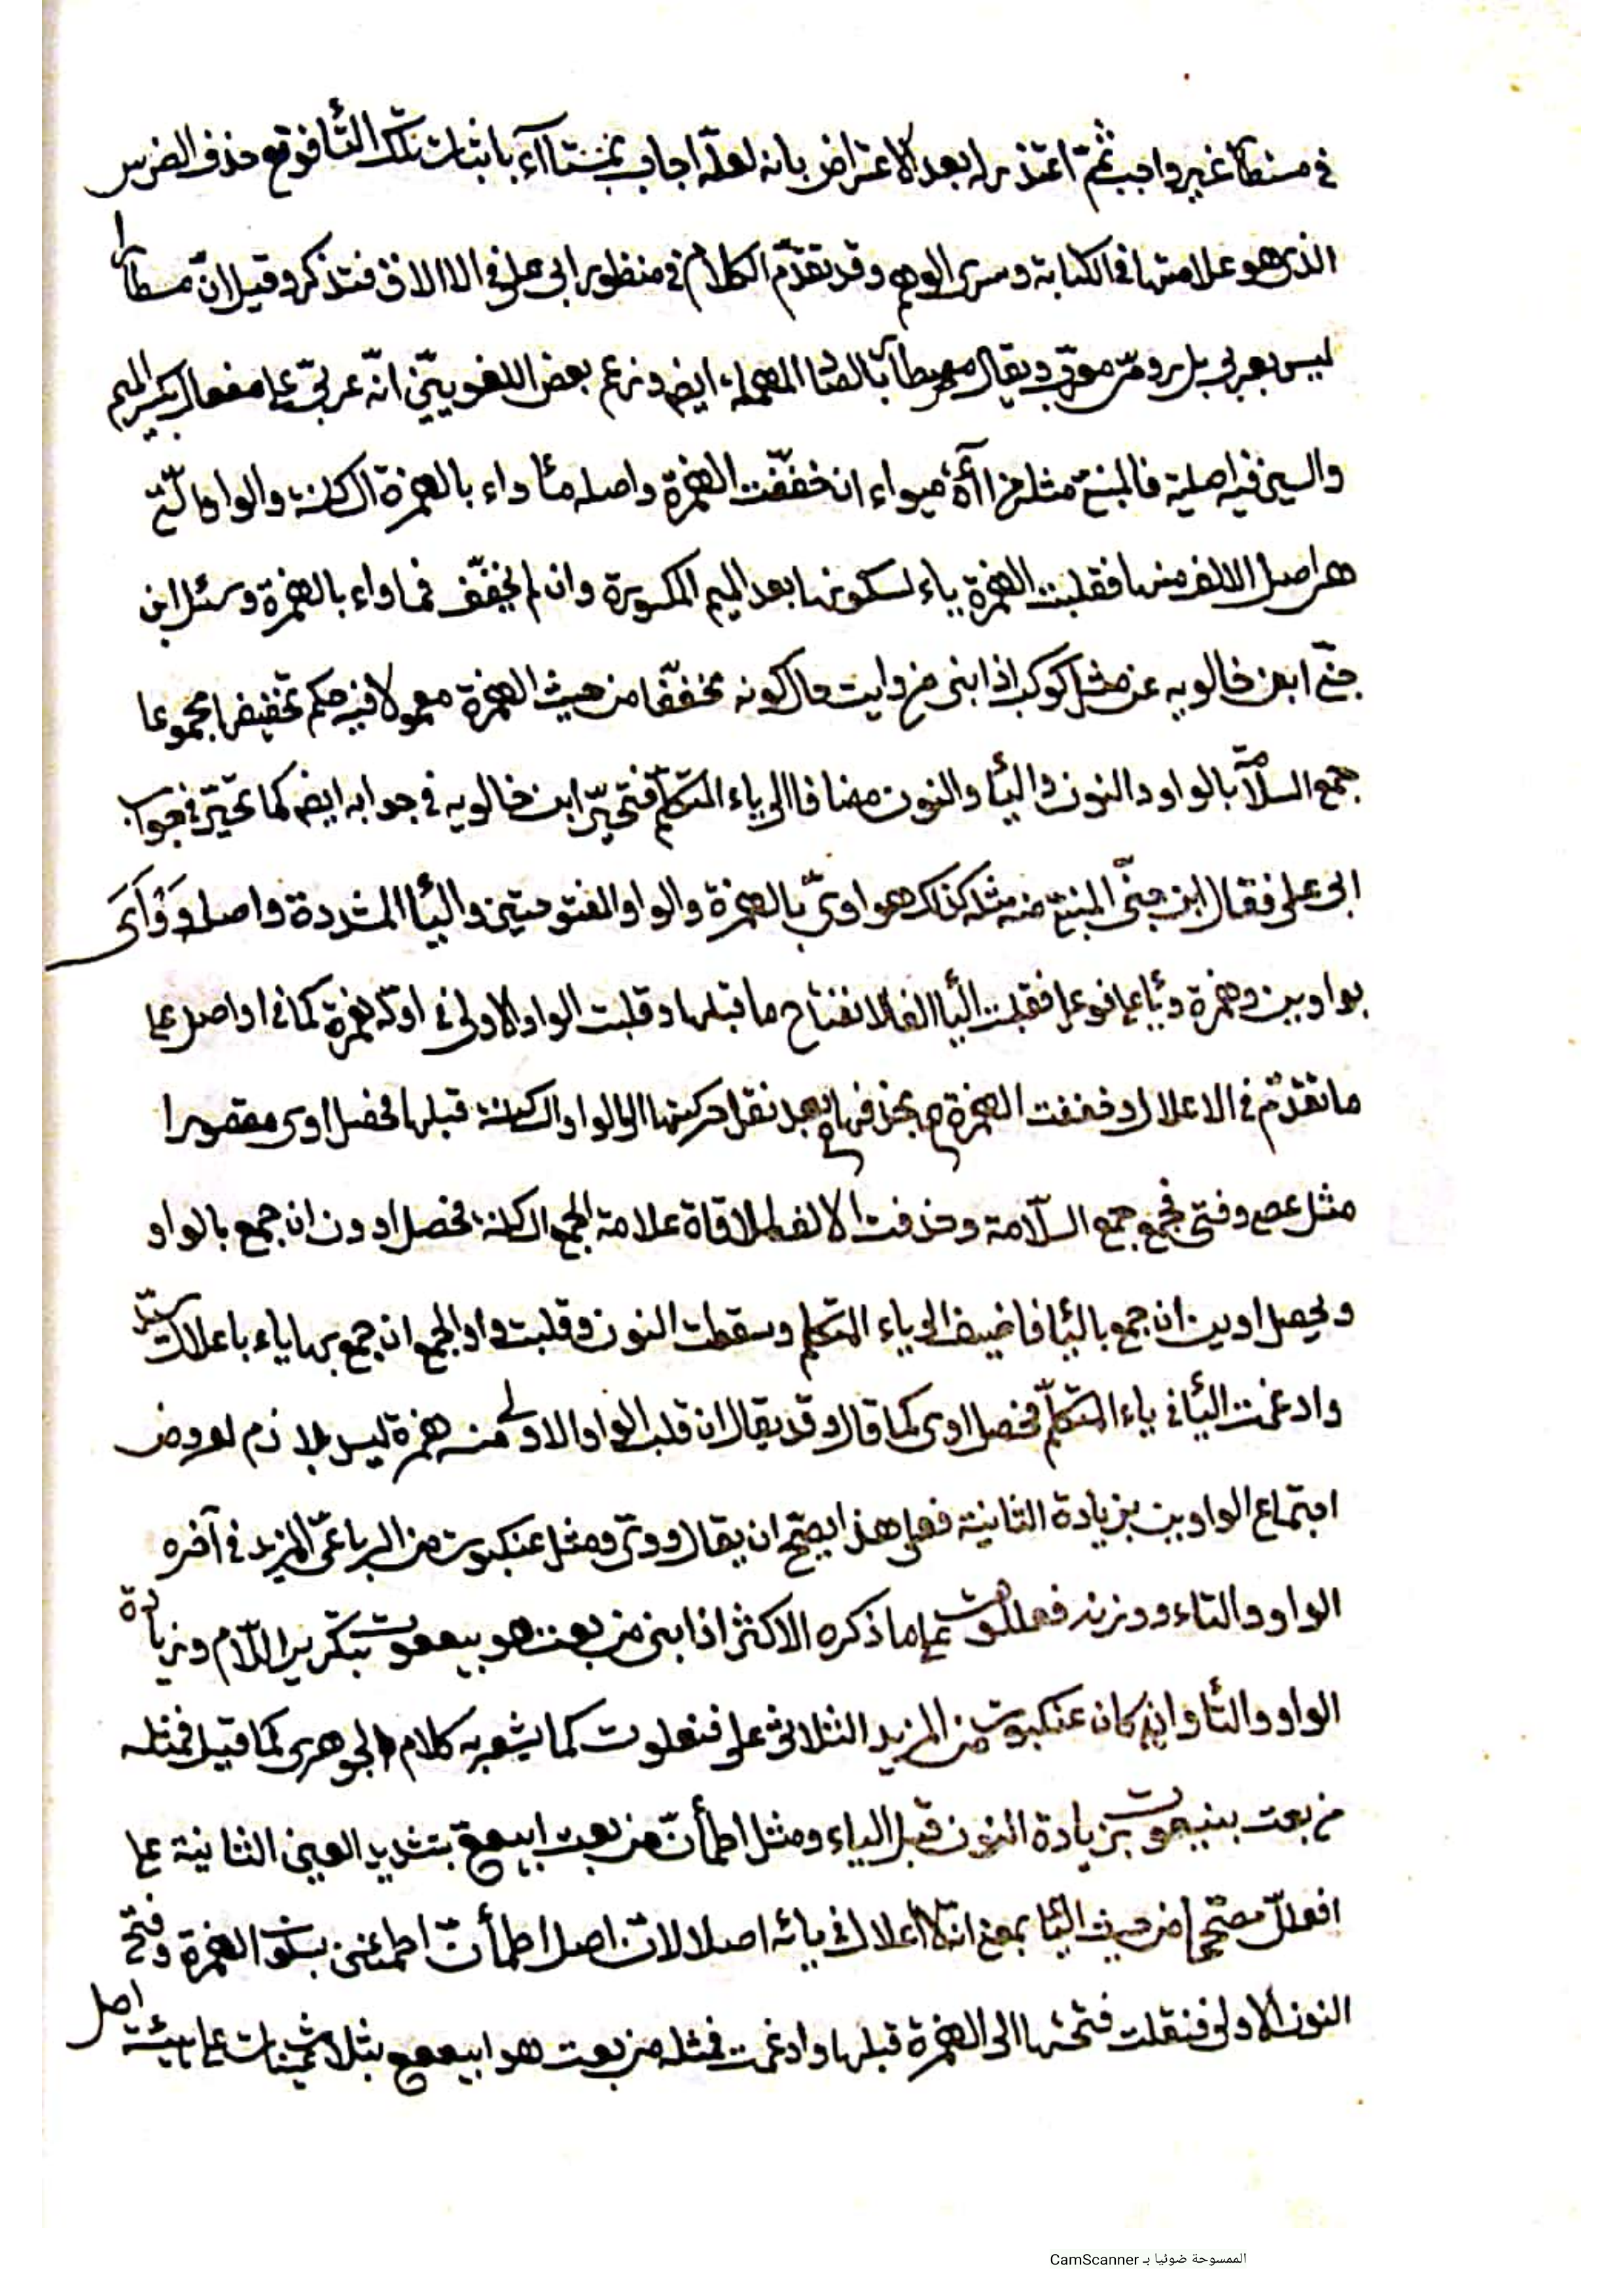 في مسطآء غير واجب ثمّ اعتذر له بعد الاعتراض بانه لعلّه اجاب بمستاآء باثبات تلك التّا فوقع حذف الضرس
الذى هو علامتها في الكتابة وسرى الوهم وقد تقدّم الكلام في منظور ابى على في الاالاق فتذكر وقيل انّ مسطاء
ليس بعربى بل رومىّ معرّب ويقال مصطاء بالصّا المهملة ايض وزعم بعض اللغويّين انّه عربىّ على مفعال بكسر الميم
والسين فيه اصلية فالمبنىّ مثله من اآءة ميواء ان خففّت الهمزة واصله مئاواء بالهمزة الساكنة والواو الّتى
هى اصل الالف منها فقلبت الهمزة ياء لسكونها بعد الميم المكسورة وان لم يخفّف فماواء بالهمزة وسئل ابن
جنّى ابن خالويه عن مثل كوكب اذا بنى من وايت حال كونه مخففّا من حيث الهمزة معمولا فيه حكم تخفيفها مجموعا
جمع السلامّة بالواو والنون و اليّا والنون مضافا الى ياء المتكلّم فتحيّر ابن خالويه في جوابه ايض كما تحيّر في جواب
ابى على فقال ابن جنّى المبنى منه مثله كذلك هو اوىّ بالهمزة والواو المفتوحتين واليّا المشددة واصله وَوْأَىَ
بواوين وهمزة ويّا على فوعل فقلبت اليّا الفا لانفتاح ما قبلها وقلبت الواو الاولى في اوّله همزة كما في اواصل على
ما تقدّم في الاعلال وخففت الهمزة ح بحذفها بعد نقل حركتها الى الواو الساكنة قبلها فحصل اوى مقصورا
مثل عصى وفتى فجمع جمع السلّامة وحذفت الالف لملاقاة علامة الجمع الساكنة فحصل اوون ان جمع بالواو
ويحصل اوين ان جمع باليّا فاضيف الى ياء المتكلم وسقطت النون وقلبت واو الجمع ان جمع بها ياء باعلال سيّد
وادغمت اليّا في ياء المتكلّم فحصل اوى كما قال وقد يقال ان قلب الواو الاولى منه همزة ليس بلازم لعروض
اجتماع الواوين بزيادة الثانية فعلى هذا يصحّ ان يقال ووىّ ومثل عنكبوت من الرباعىّ المزيد في آخره
الواو والتاء ووزنه فعللوت على ما ذكره الاكثر اذا بنى من بعت هو بيععوت بتكرير اللّام وزيادة
الواو والتّا وان كان عنكبوت من المزيد الثلاثى على فنعلوت كما يشعر به كلام الجوهرى كما قيل فمثله
من بعت بنيعوت بزيادة النون قبل الياء ومثل اطمأنّ من بعت ابيععّ بتشديد العين الثانية على
افعللّ مصحّحا من حيث اليّا بمعنى انّه لا اعلال في يائه اصلا لانّ اصل اطمأنّ اطمئنن بسكون الهمزة وفتح
النون الاولى فنقلت فتحتها الى الهمزة قبلها وادغمت فمثله من بعت هو ابيععع بثلاث عينات على هيئة اصل
الممسوحة ضوئيا بـ CamScanner